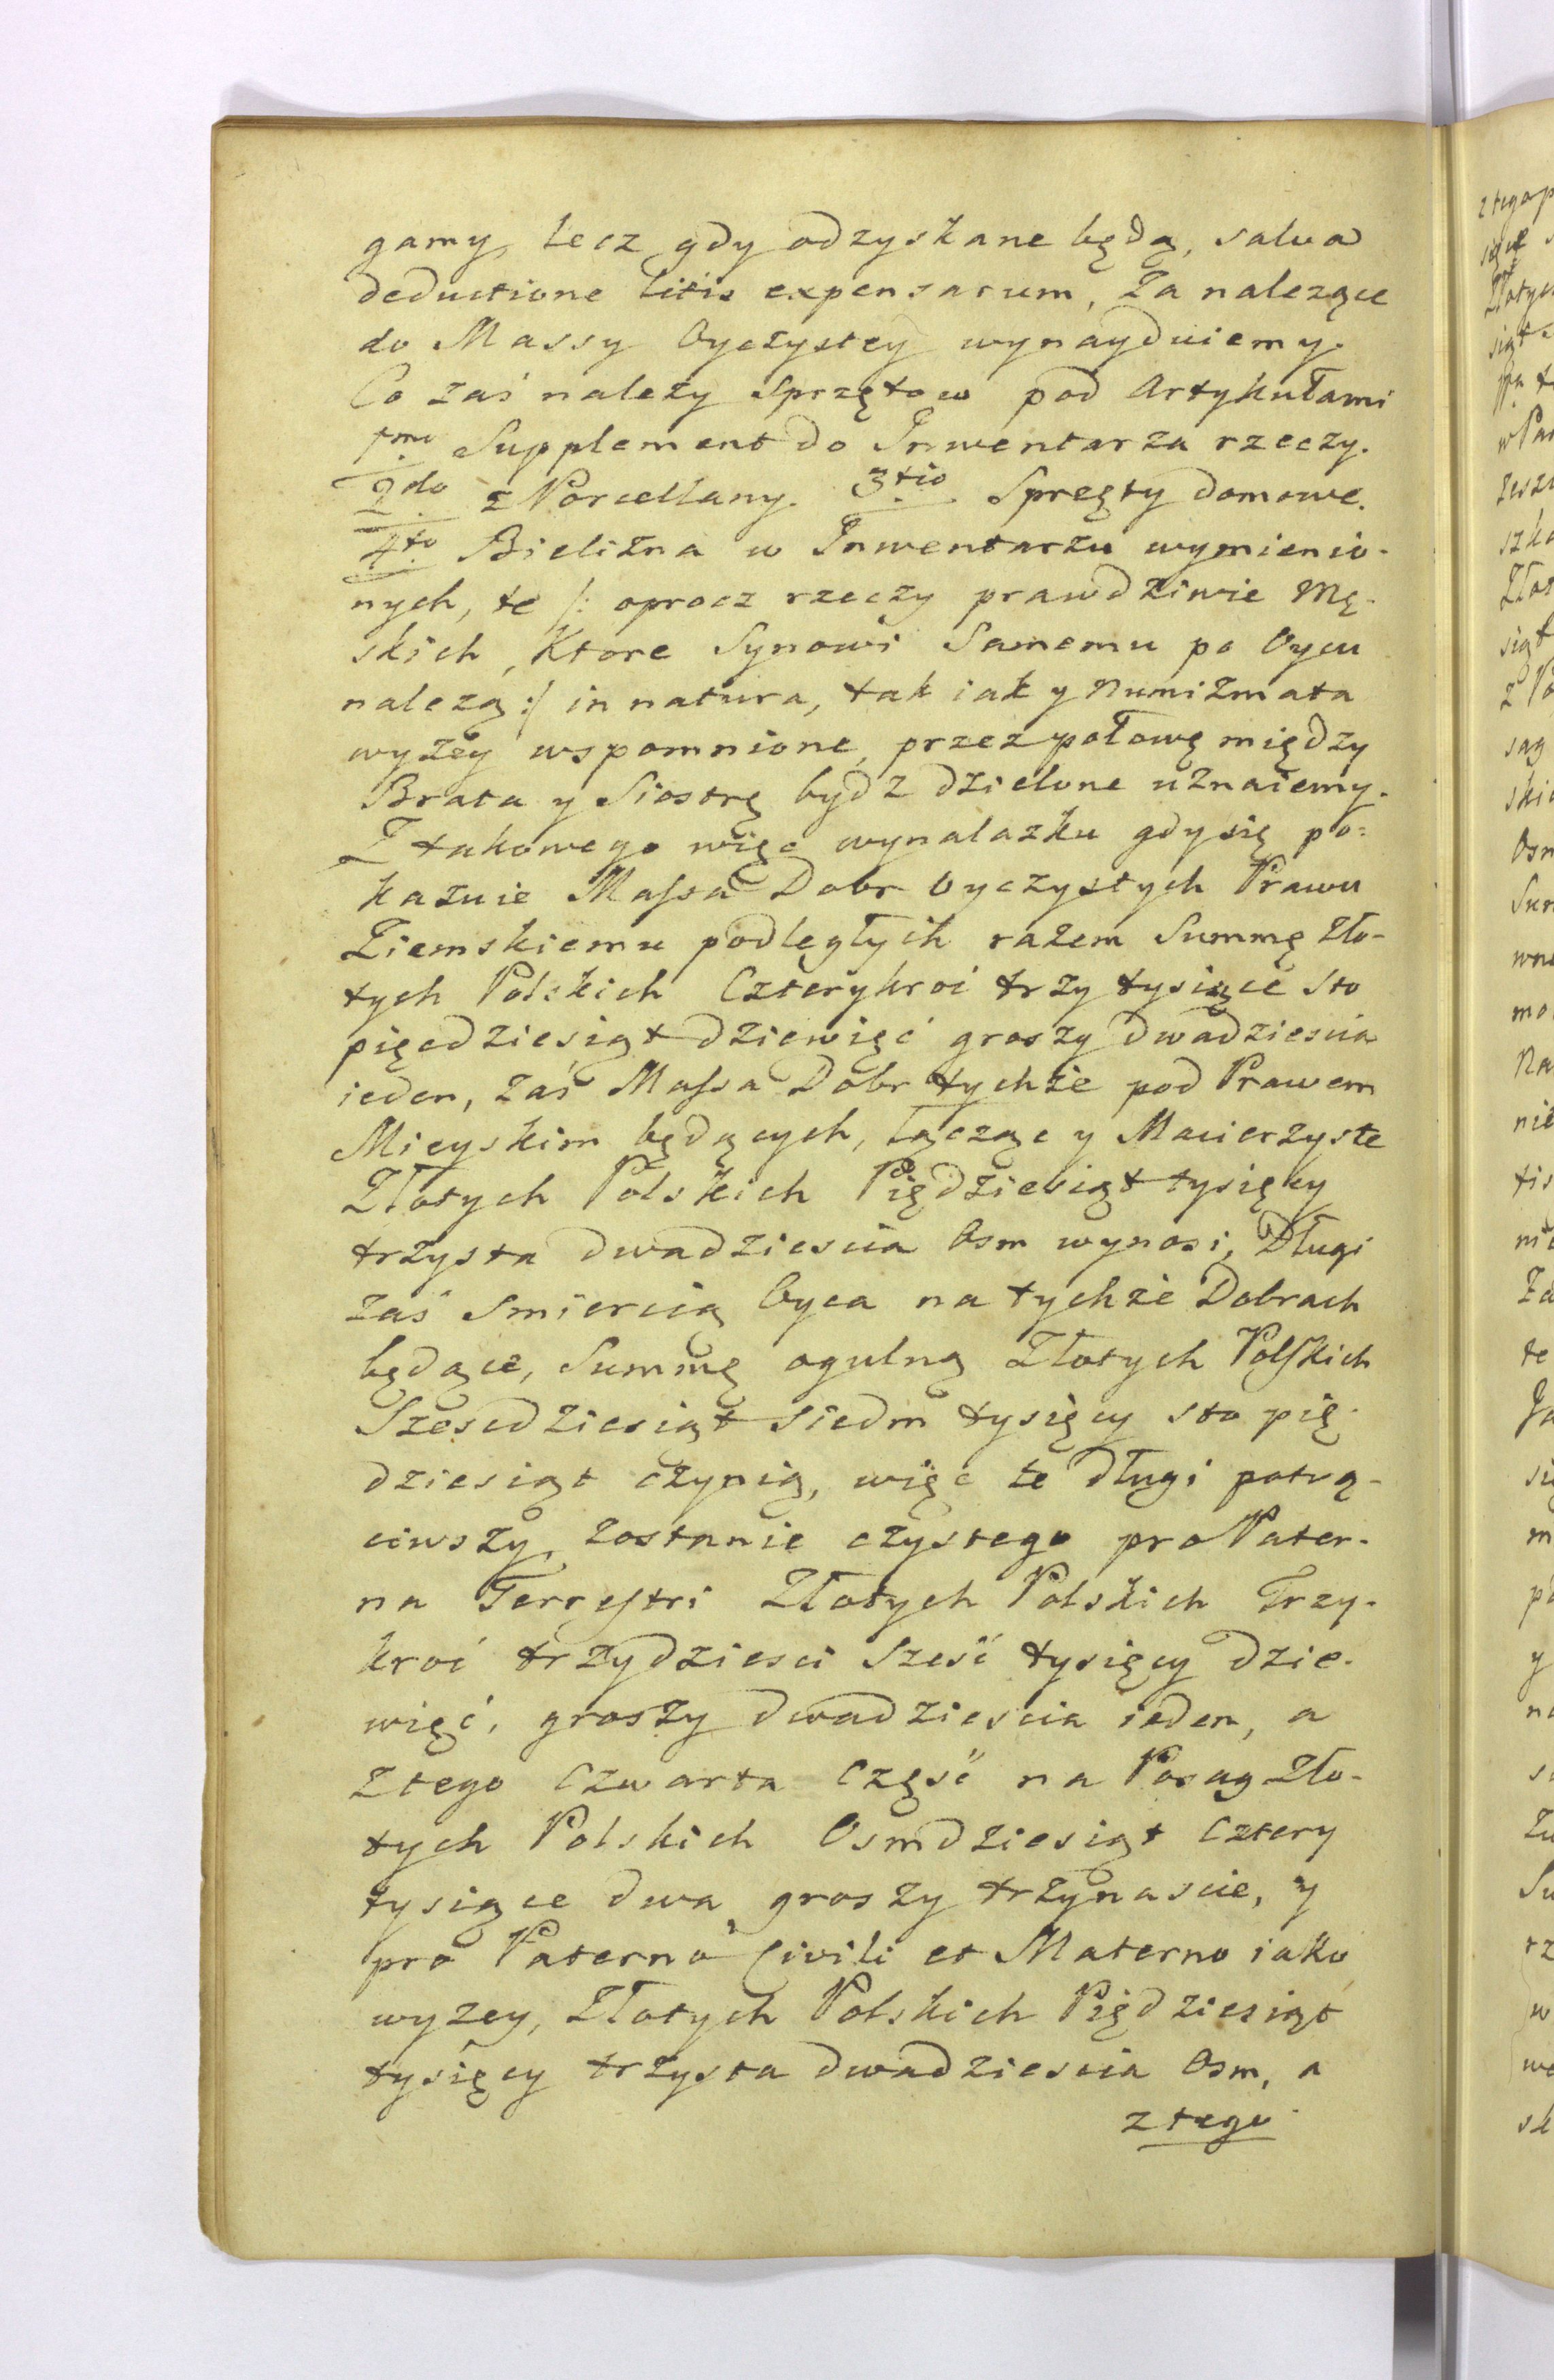 gamy, lecz gdy odzyskane będą, salva
deductione litis expensarum, za nalezące
do Massy Oyczystey wynayduiemy.
Co zaś nalezy Sprzętow pod Artykułami
1mo Supplement do Inwentarza rzeczy.
2do z Porcellany. 3tio Spręzty domowe.
4to Bielizna w Inwentarzu wymienio-
nych, te /: oprocz rzeczy prawdziwie Mę-
skich, Ktore Synowi Samemu po Oycu
nalezą :/ in natura, tak iak y Numizmata
wyzey wspomnione, przez połowę między
Brata y Siostrę bydz dzielone uznaiemy.
Z takowego więc wynalazku gdy się po=
kazuie Massa Dobr Oyczystych Prawu
Ziemskiemu podległych razem Summę Zło-
tych Polskich Czterykroć trzy tysiące Sto
pięcdziesiąt dziewięć groszy dwadziescia
ieden, zaś Massa Dobr tychże pod Prawem
Mieyskim będących, łącząc y Macierzyste
Złotych Polskich Pięćdziesiąt tysięcy
trzysta dwadziescia Osm wynosi, Długi
zaś Smiercią Oyca na tychże Dobrach
będące, Summę ogulną Złotych Polskich
Szescdziesiąt siedm tysięcy sto pię-
dziesiąt czynią, więc te długi potrą-
ciwszy, zostanie czystego pro Pater-
na Terrestri Złotych Polskich Trzy-
kroć trzydziesci Sześć tysięcy dzie-
więć, groszy dwadziescia ieden, a
ztego Czwarta Część na Posag Zło-
tych Polskich Osmdziesiąt Cztery
tysiące dwa, groszy trzynascie, y
pro Paterno Civili et Materno iako
wyzey, Złotych Polskich Piędziesiąt
tysięcy trzysta dwadziescia Osm, a
ztego